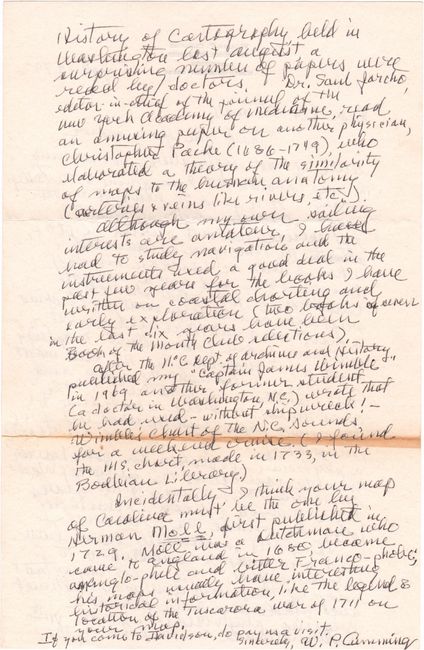 History of Cartography held in
Washington last august a
surprising number of papers were
read by doctors. Dr. Saul Jarcho,
editor-in-chief of the journal of the
New York Academy of Medicine, read
an amusing paper on another physician,
Christopher Packe (1686-1749), who
elaborated a theory of the similarity
of maps to the human anatomy
(arteries & veins like rivers, etc.).
Although my own sailing
interests are amateur, I have
had to study navigation and the
instruments used a good deal in the
past few years for the books I have
written on coastal charting and
early exploration (two books of
in the last six years have been
Book of the Month Club selections).
After the N.C. Dept. of Archives and History
published my "Captain James Wimble"
in 1969 another former student
(a doctor in Washington, N.C.) wrote that
he had used - without shipwreck! -
Wimble's Chart of the N.C. Sounds
for a weekend cruise. (I found
the MS. chart, made in 1733, in the
Bodleian Library.)
Incidentally, I think your map
of Carolina must be the one by
Herman Moll, first published in
1729. Moll was a Dutchman who
came to England in 1680 became
anglo-phile and bitter Franco-phobe;
his maps usually have interesting
historical information, like the legend &
location of the Tuscarora war of 1711 on
your map.
If you come to Davidson, do pay us a visit.
Sincerely, W. P. Cumming